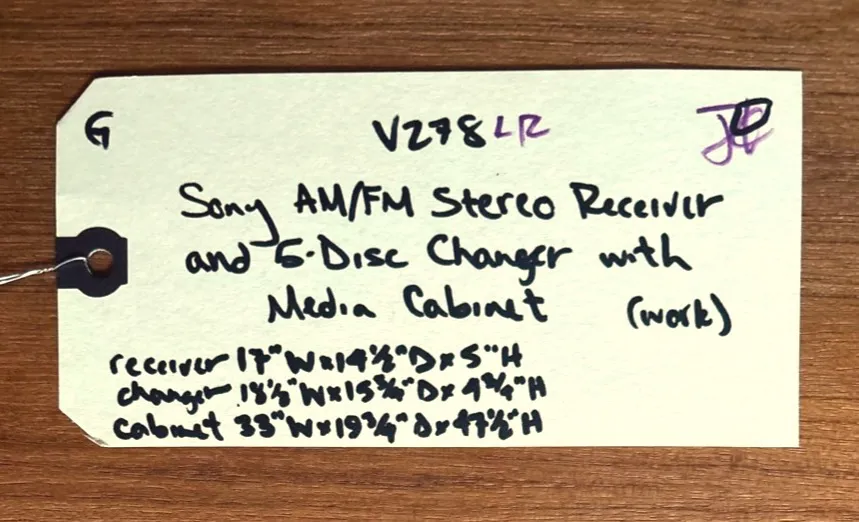 G V278LR
Sony AM/FM Stereo Receiver
and 5-Disc Changer with
Media Cabinet (work)
receiver 17"W x 14½"D x 5"H
changer 18½"W x 15¾"D x 4¾"H
cabinet 33"W x 19¾"D x 47½"H